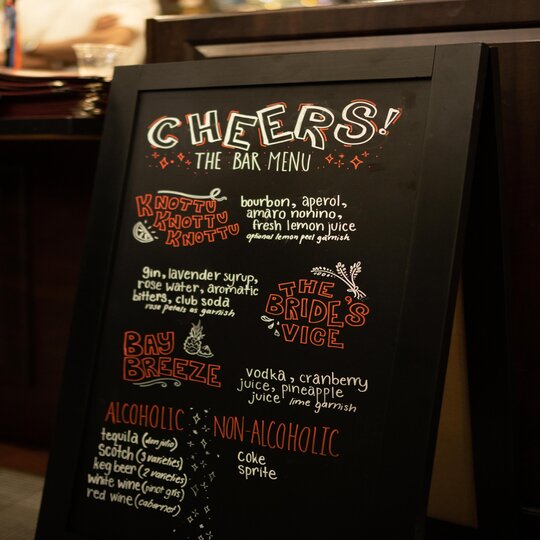 CHEERS!
THE BAR MENU
KNOTTU
KNOTTU
KNOTTU
bourbon, aperol,
amaro nonino,
fresh lemon juice
optional lemon peel garnish
gin, lavender syrup,
rose water, aromatic
bitters, club soda
rose petals as garnish
THE
BRIDE'S
VICE
BAY
BREEZE
vodka, cranberry
juice, pineapple
juice lime garnish
ALCOHOLIC
tequila (don julio)
Scotch (3 varieties)
keg beer (2 varieties)
white wine (pinot gris)
red wine (cabernet)
NON-ALCOHOLIC
coke
sprite